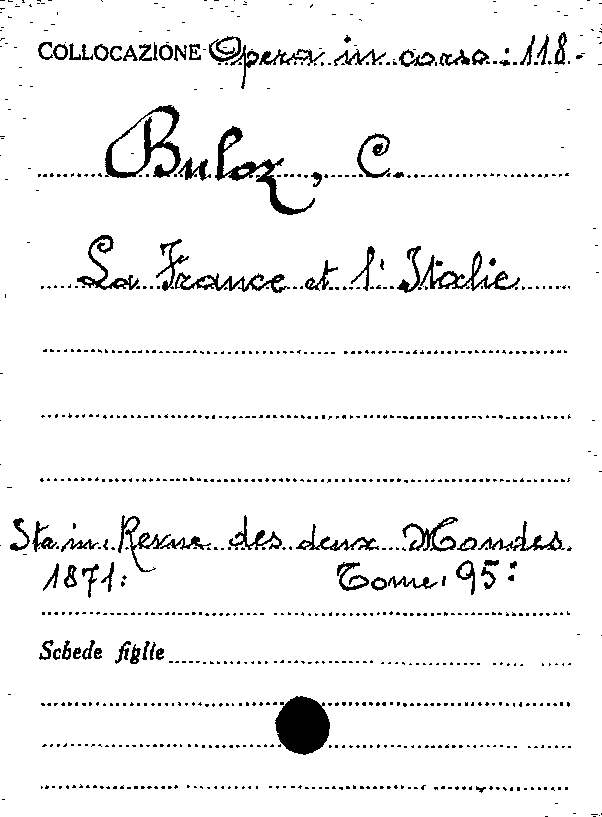 COLLOCAZIONE Opera in corso: 118.
Buloz, C.
La France et l'Italie
Sta in: Revue des deux Mondes.
1871: Tome. 95:
Schede figlie